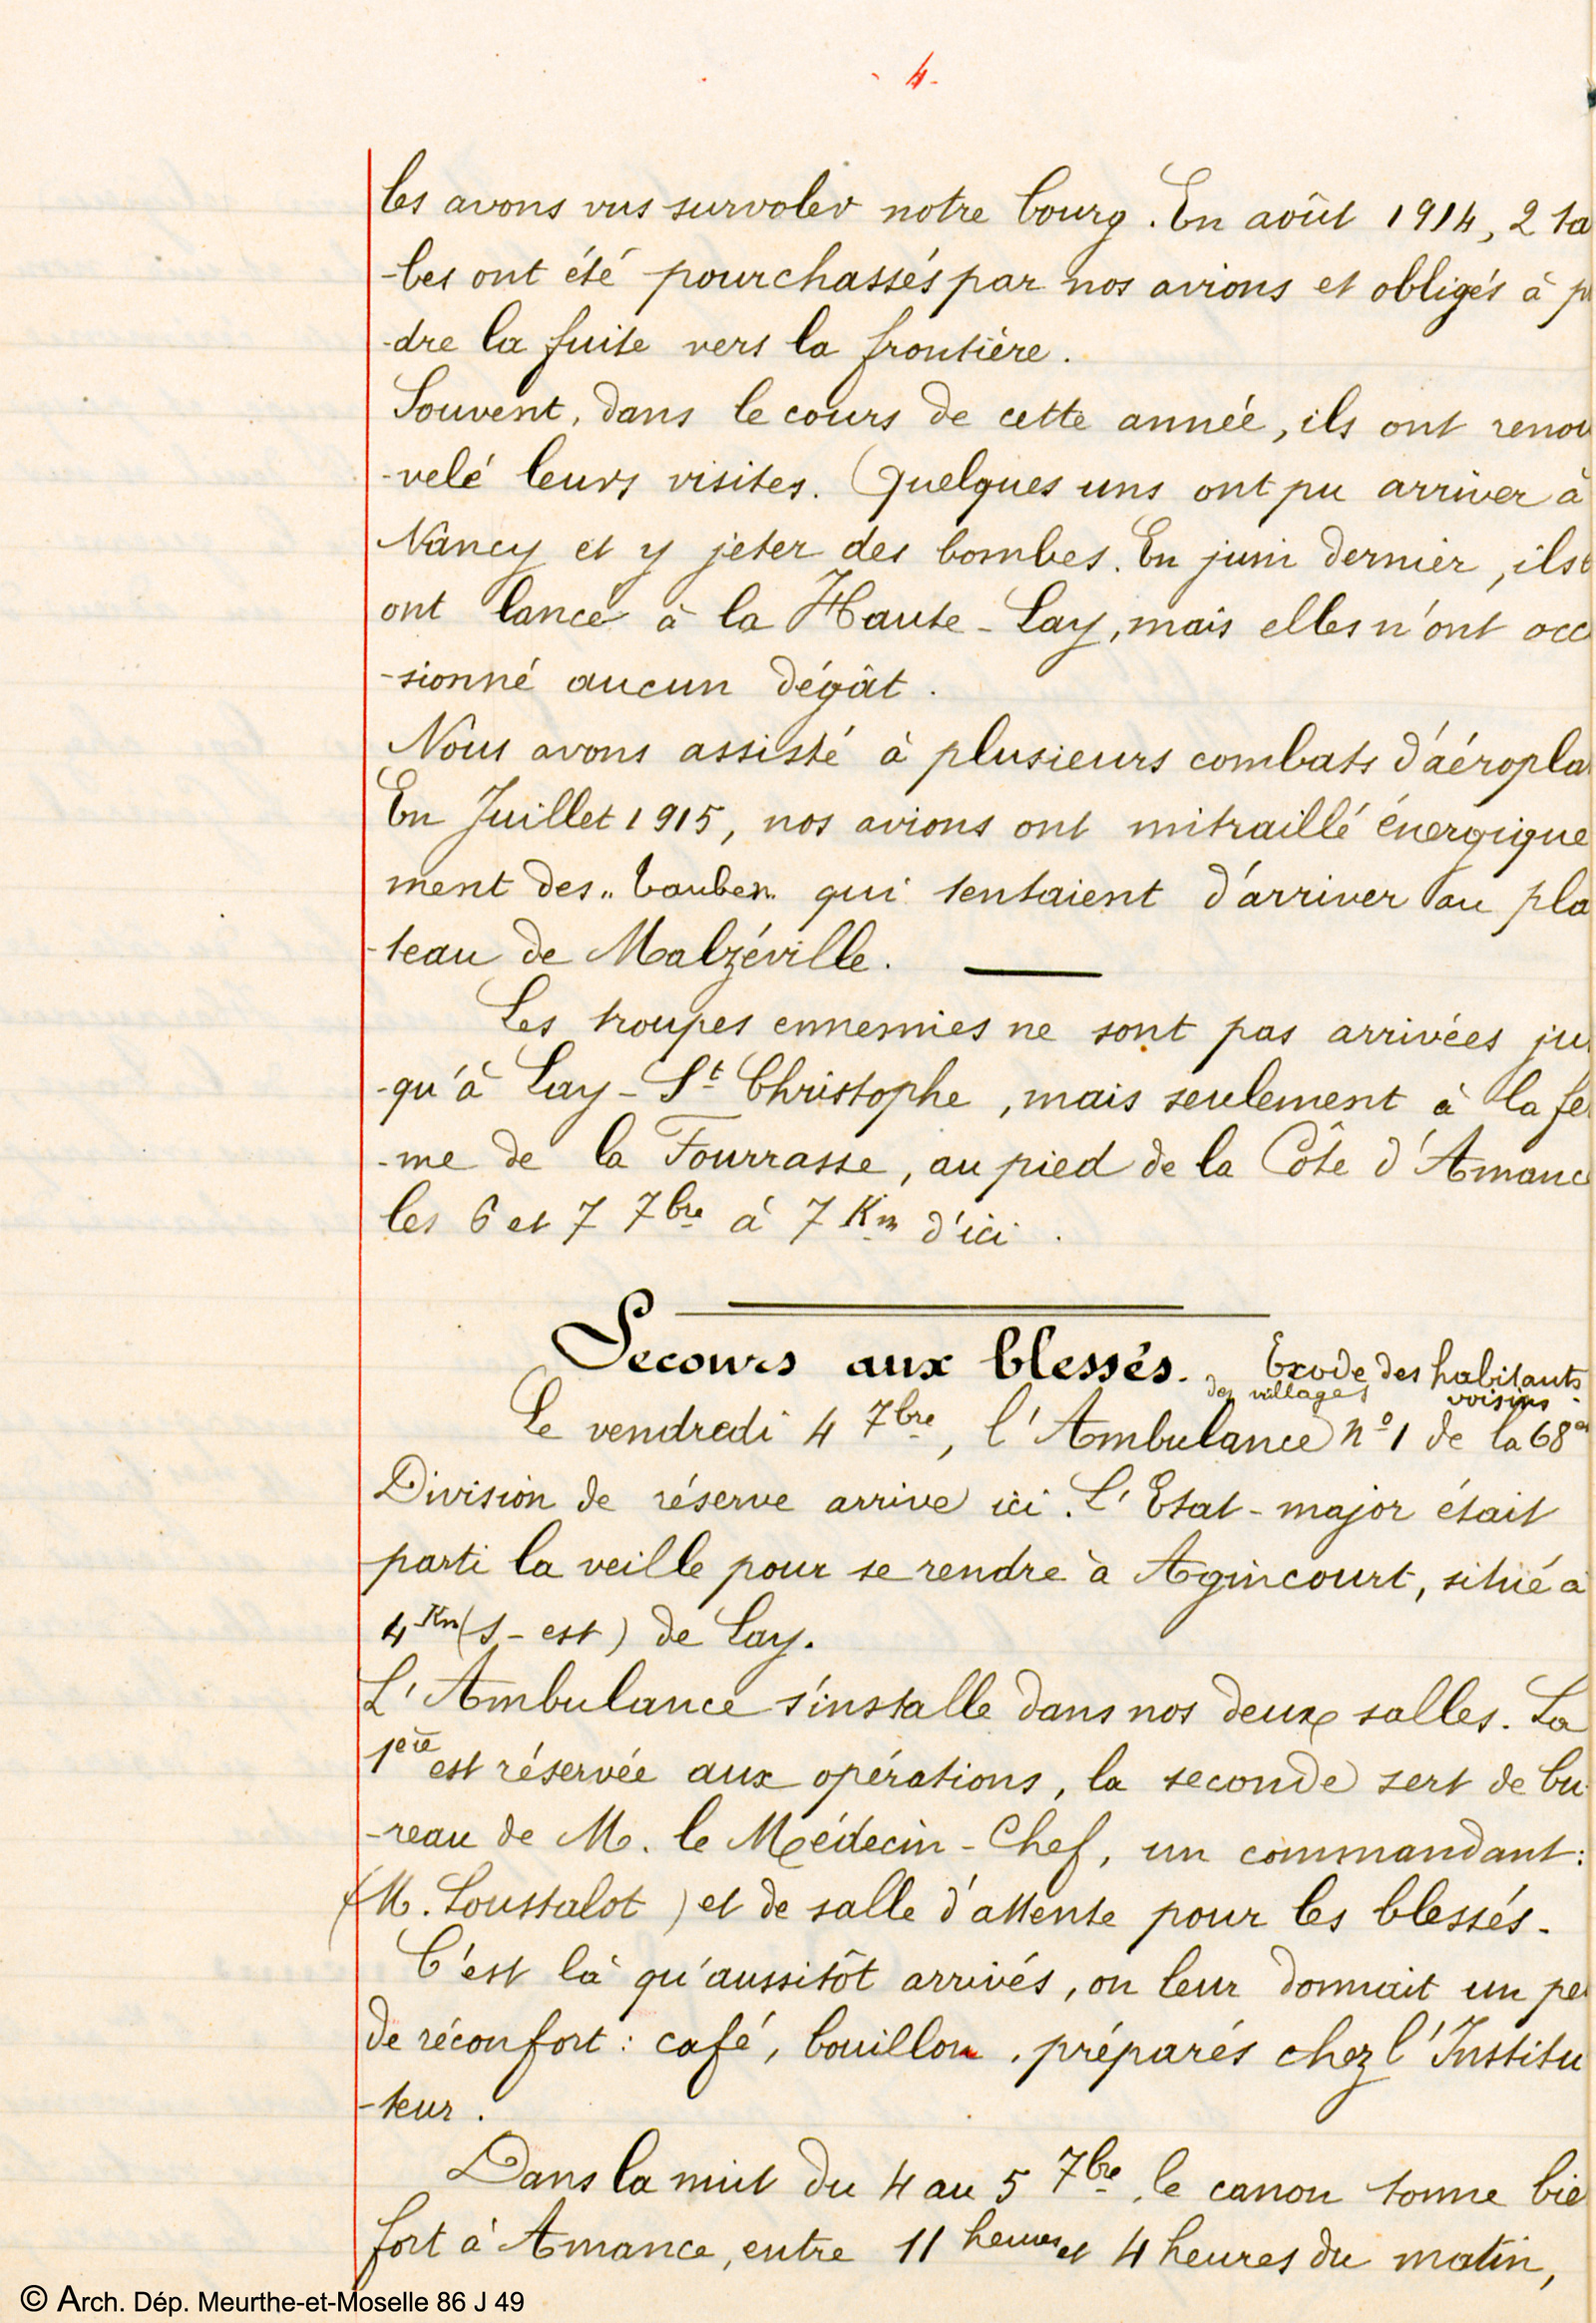 4.
les avons vus survoler notre bourg. En août 1914, 2 ta
-bes ont été pourchassés par nos avions et obligés à p
-dre la fuite vers la frontière.
Souvent, dans le cours de cette année, ils ont renou
-velé leurs visites. Quelques uns ont pu arriver à
Nancy et y jeter des bombes. En juin dernier, ils
ont lancé à la Haute-Lay, mais elles n'ont occ
-sionné aucun dégât.
Nous avons assisté à plusieurs combats d'aéropla
En Juillet 1915, nos avions ont mitraillé énergique
ment des "tauben" qui tentaient d'arriver au pla
-teau de Malzéville.
Les troupes ennemies ne sont pas arrivées ju
-qu'à Lay-St Christophe, mais seulement à la fe
-me de la Fourrasse, au pied de la Côte d'Amanc
les 6 et 7 7bre à 7 Km d'ici.
Secours aux blessés. Exode des habitants
des villages voisins.
Le vendredi 4 7bre, l'Ambulance n° 1 de la 68e
Division de réserve arrive ici. L'Etat-major était
parti la veille pour se rendre à Agincourt, situé à
4 Km (S-est) de Lay.
L'Ambulance s'installe dans nos deux salles. La
1ère est réservée aux opérations, la seconde sert de bu
-reau de M. le Médecin-Chef, un commandant:
(M. Loustalot) et de salle d'attente pour les blessés.
C'est là qu'aussitôt arrivés, on leur donnait un pe
de réconfort: café, bouillon, préparés chez l'Institu
-teur.
Dans la nuit du 4 au 5 7bre, le canon tonne bie
fort à Amance, entre 11 heures et 4 heures du matin,
© Arch. Dép. Meurthe-et-Moselle 86 J 49